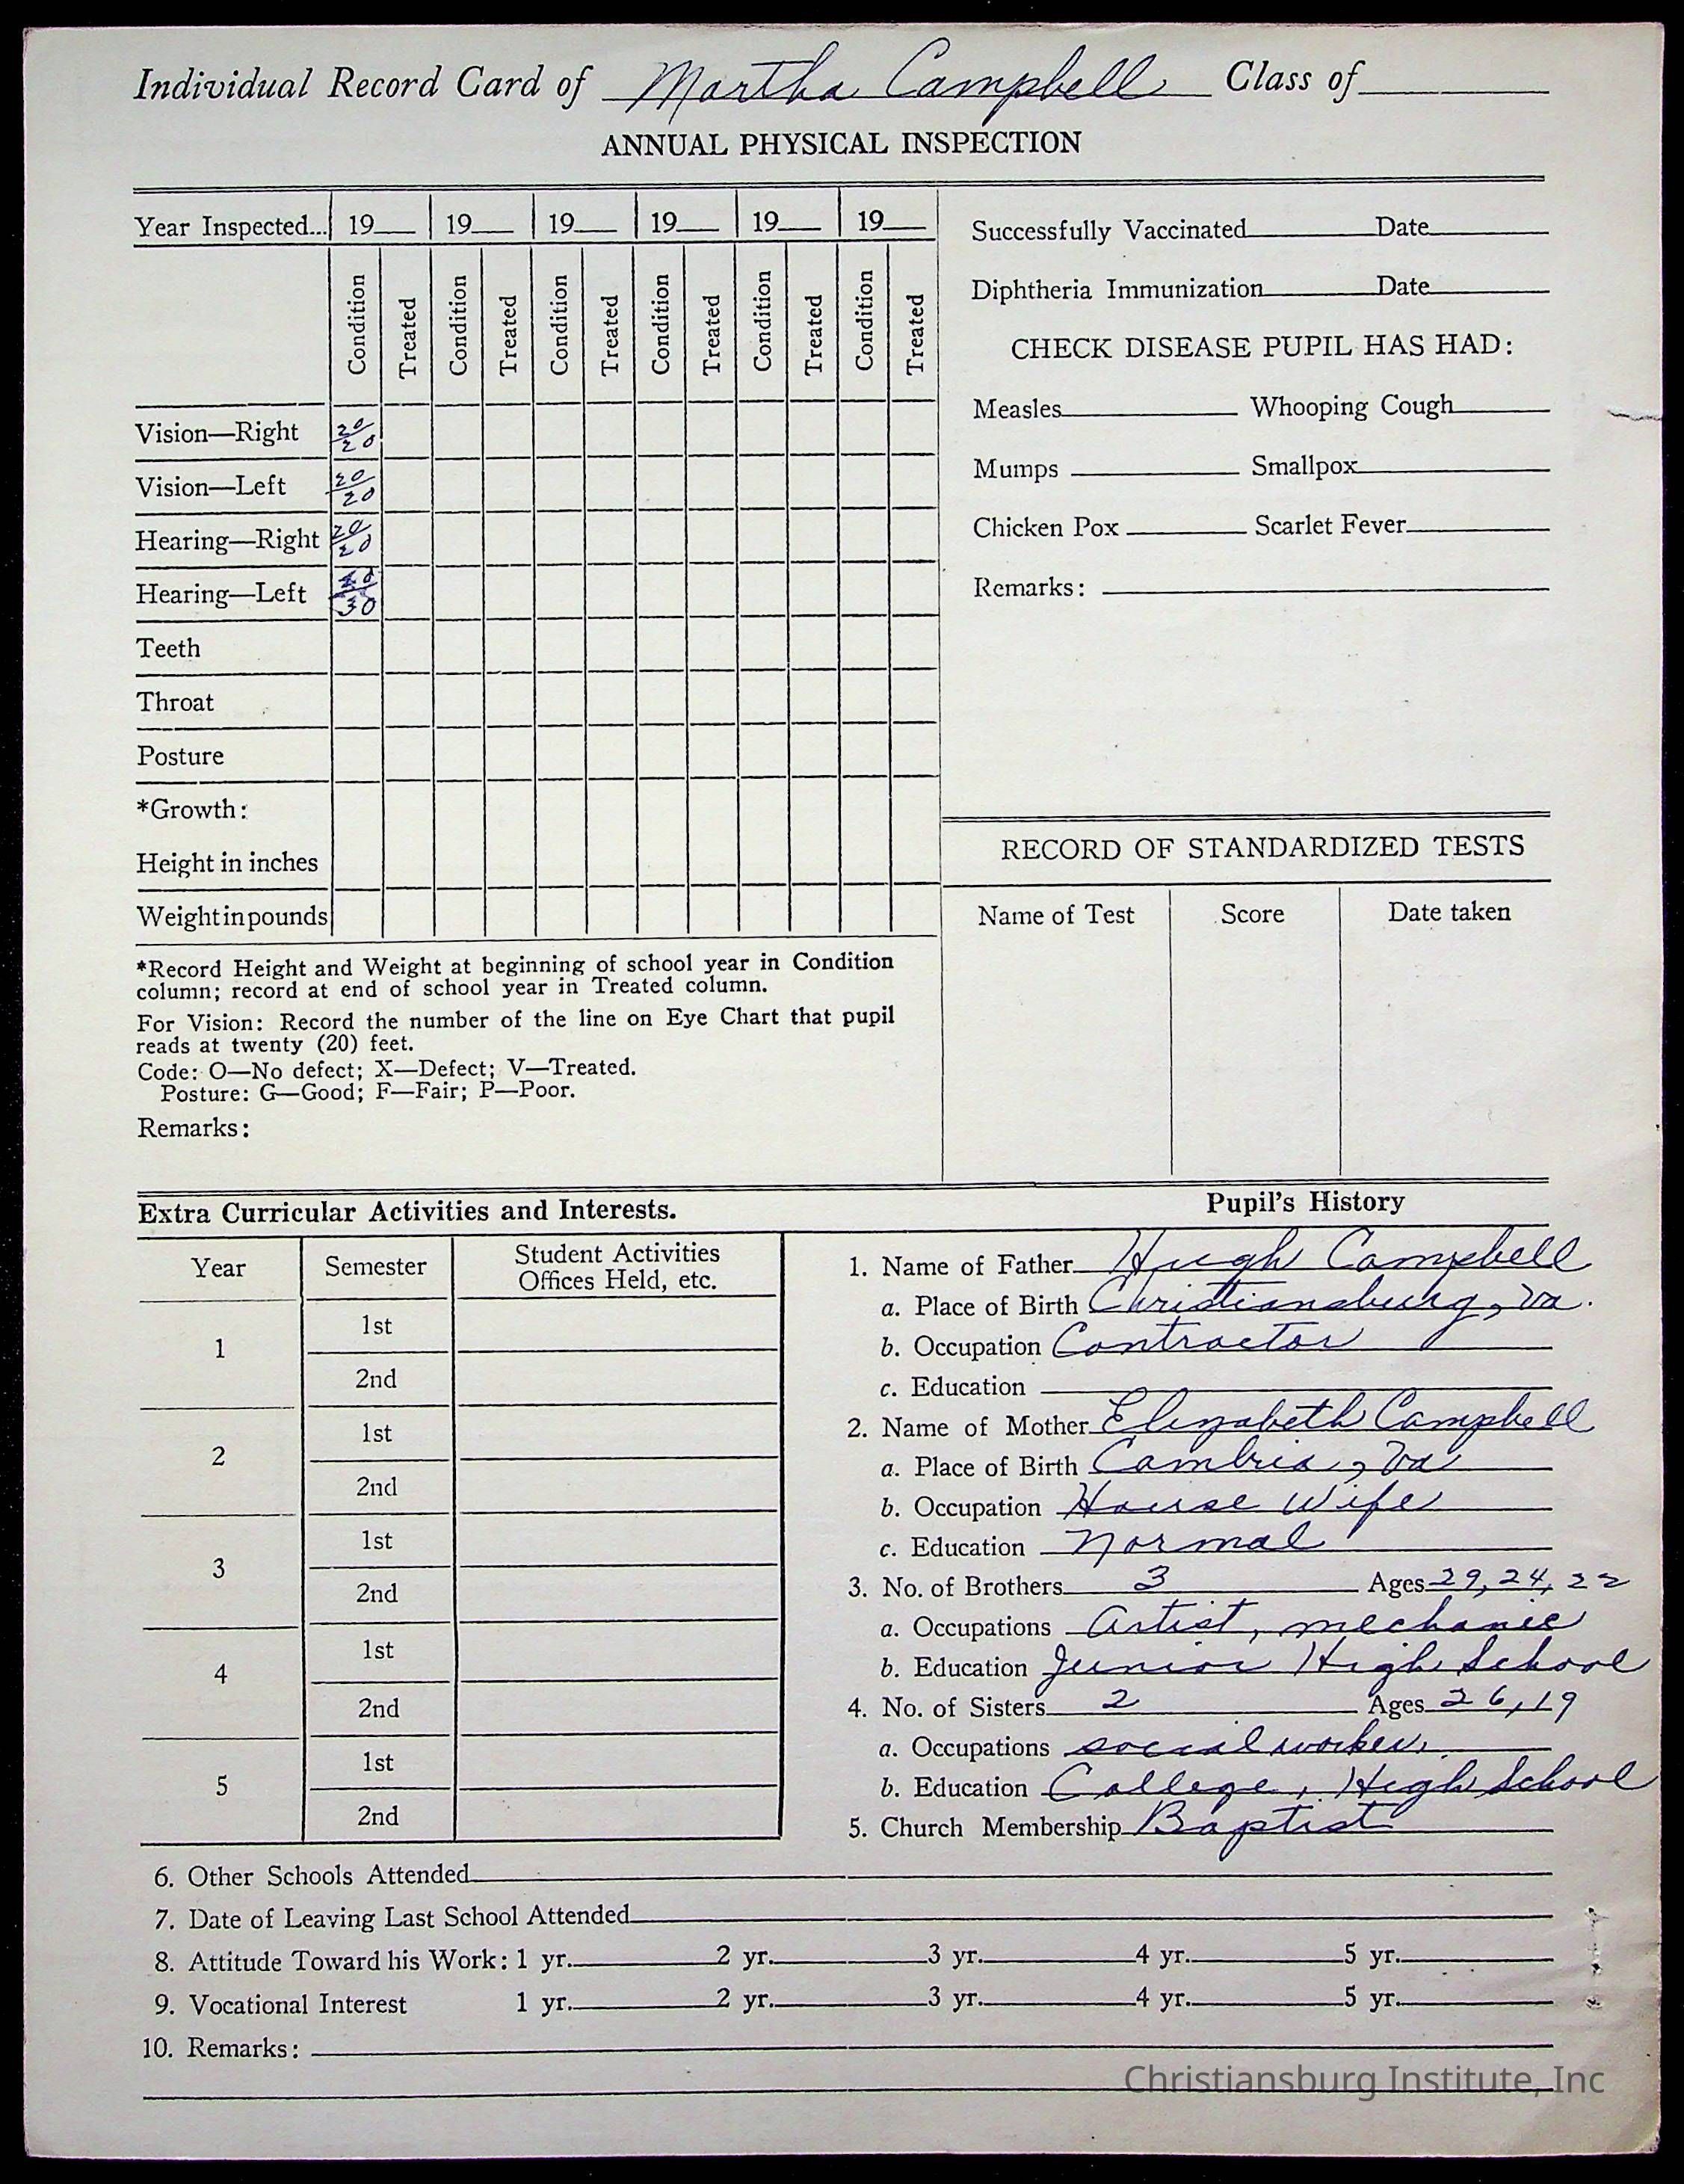 Individual Record Card of Martha Campbell Class of
ANNUAL PHYSICAL INSPECTION
Year Inspected... 19 19 19 19 19 19
Condition Treated Condition Treated Condition Treated Condition Treated Condition Treated Condition Treated
Vision—Right 20/20
Vision—Left 20/20
Hearing—Right 20/20
Hearing—Left /30
Teeth
Throat
Posture
*Growth:
Height in inches
Weight in pounds
*Record Height and Weight at beginning of school year in Condition
column; record at end of school year in Treated column.
For Vision: Record the number of the line on Eye Chart that pupil
reads at twenty (20) feet.
Code: O—No defect; X—Defect; V—Treated.
Posture: G—Good; F—Fair; P—Poor.
Remarks:
Successfully Vaccinated Date
Diphtheria Immunization Date
CHECK DISEASE PUPIL HAS HAD:
Measles Whooping Cough
Mumps Smallpox
Chicken Pox Scarlet Fever
Remarks:
RECORD OF STANDARDIZED TESTS
Name of Test Score Date taken
Extra Curricular Activities and Interests.
Year Semester Student Activities
Offices Held, etc.
1 1st
2nd
2 1st
2nd
3 1st
2nd
4 1st
2nd
5 1st
2nd
Pupil's History
1. Name of Father Hugh Campbell
a. Place of Birth Christiansburg, Va.
b. Occupation Contractor
c. Education
2. Name of Mother Elizabeth Campbell
a. Place of Birth Cambria, Va
b. Occupation House Wife
c. Education Normal
3. No. of Brothers 3 Ages 29, 24, 22
a. Occupations Artist, mechanic
b. Education Junior High School
4. No. of Sisters 2 Ages 26, 19
a. Occupations social worker,
b. Education College, High School
5. Church Membership Baptist
6. Other Schools Attended
7. Date of Leaving Last School Attended
8. Attitude Toward his Work: 1 yr. 2 yr. 3 yr. 4 yr. 5 yr.
9. Vocational Interest 1 yr. 2 yr. 3 yr. 4 yr. 5 yr.
10. Remarks:
Christiansburg Institute, Inc